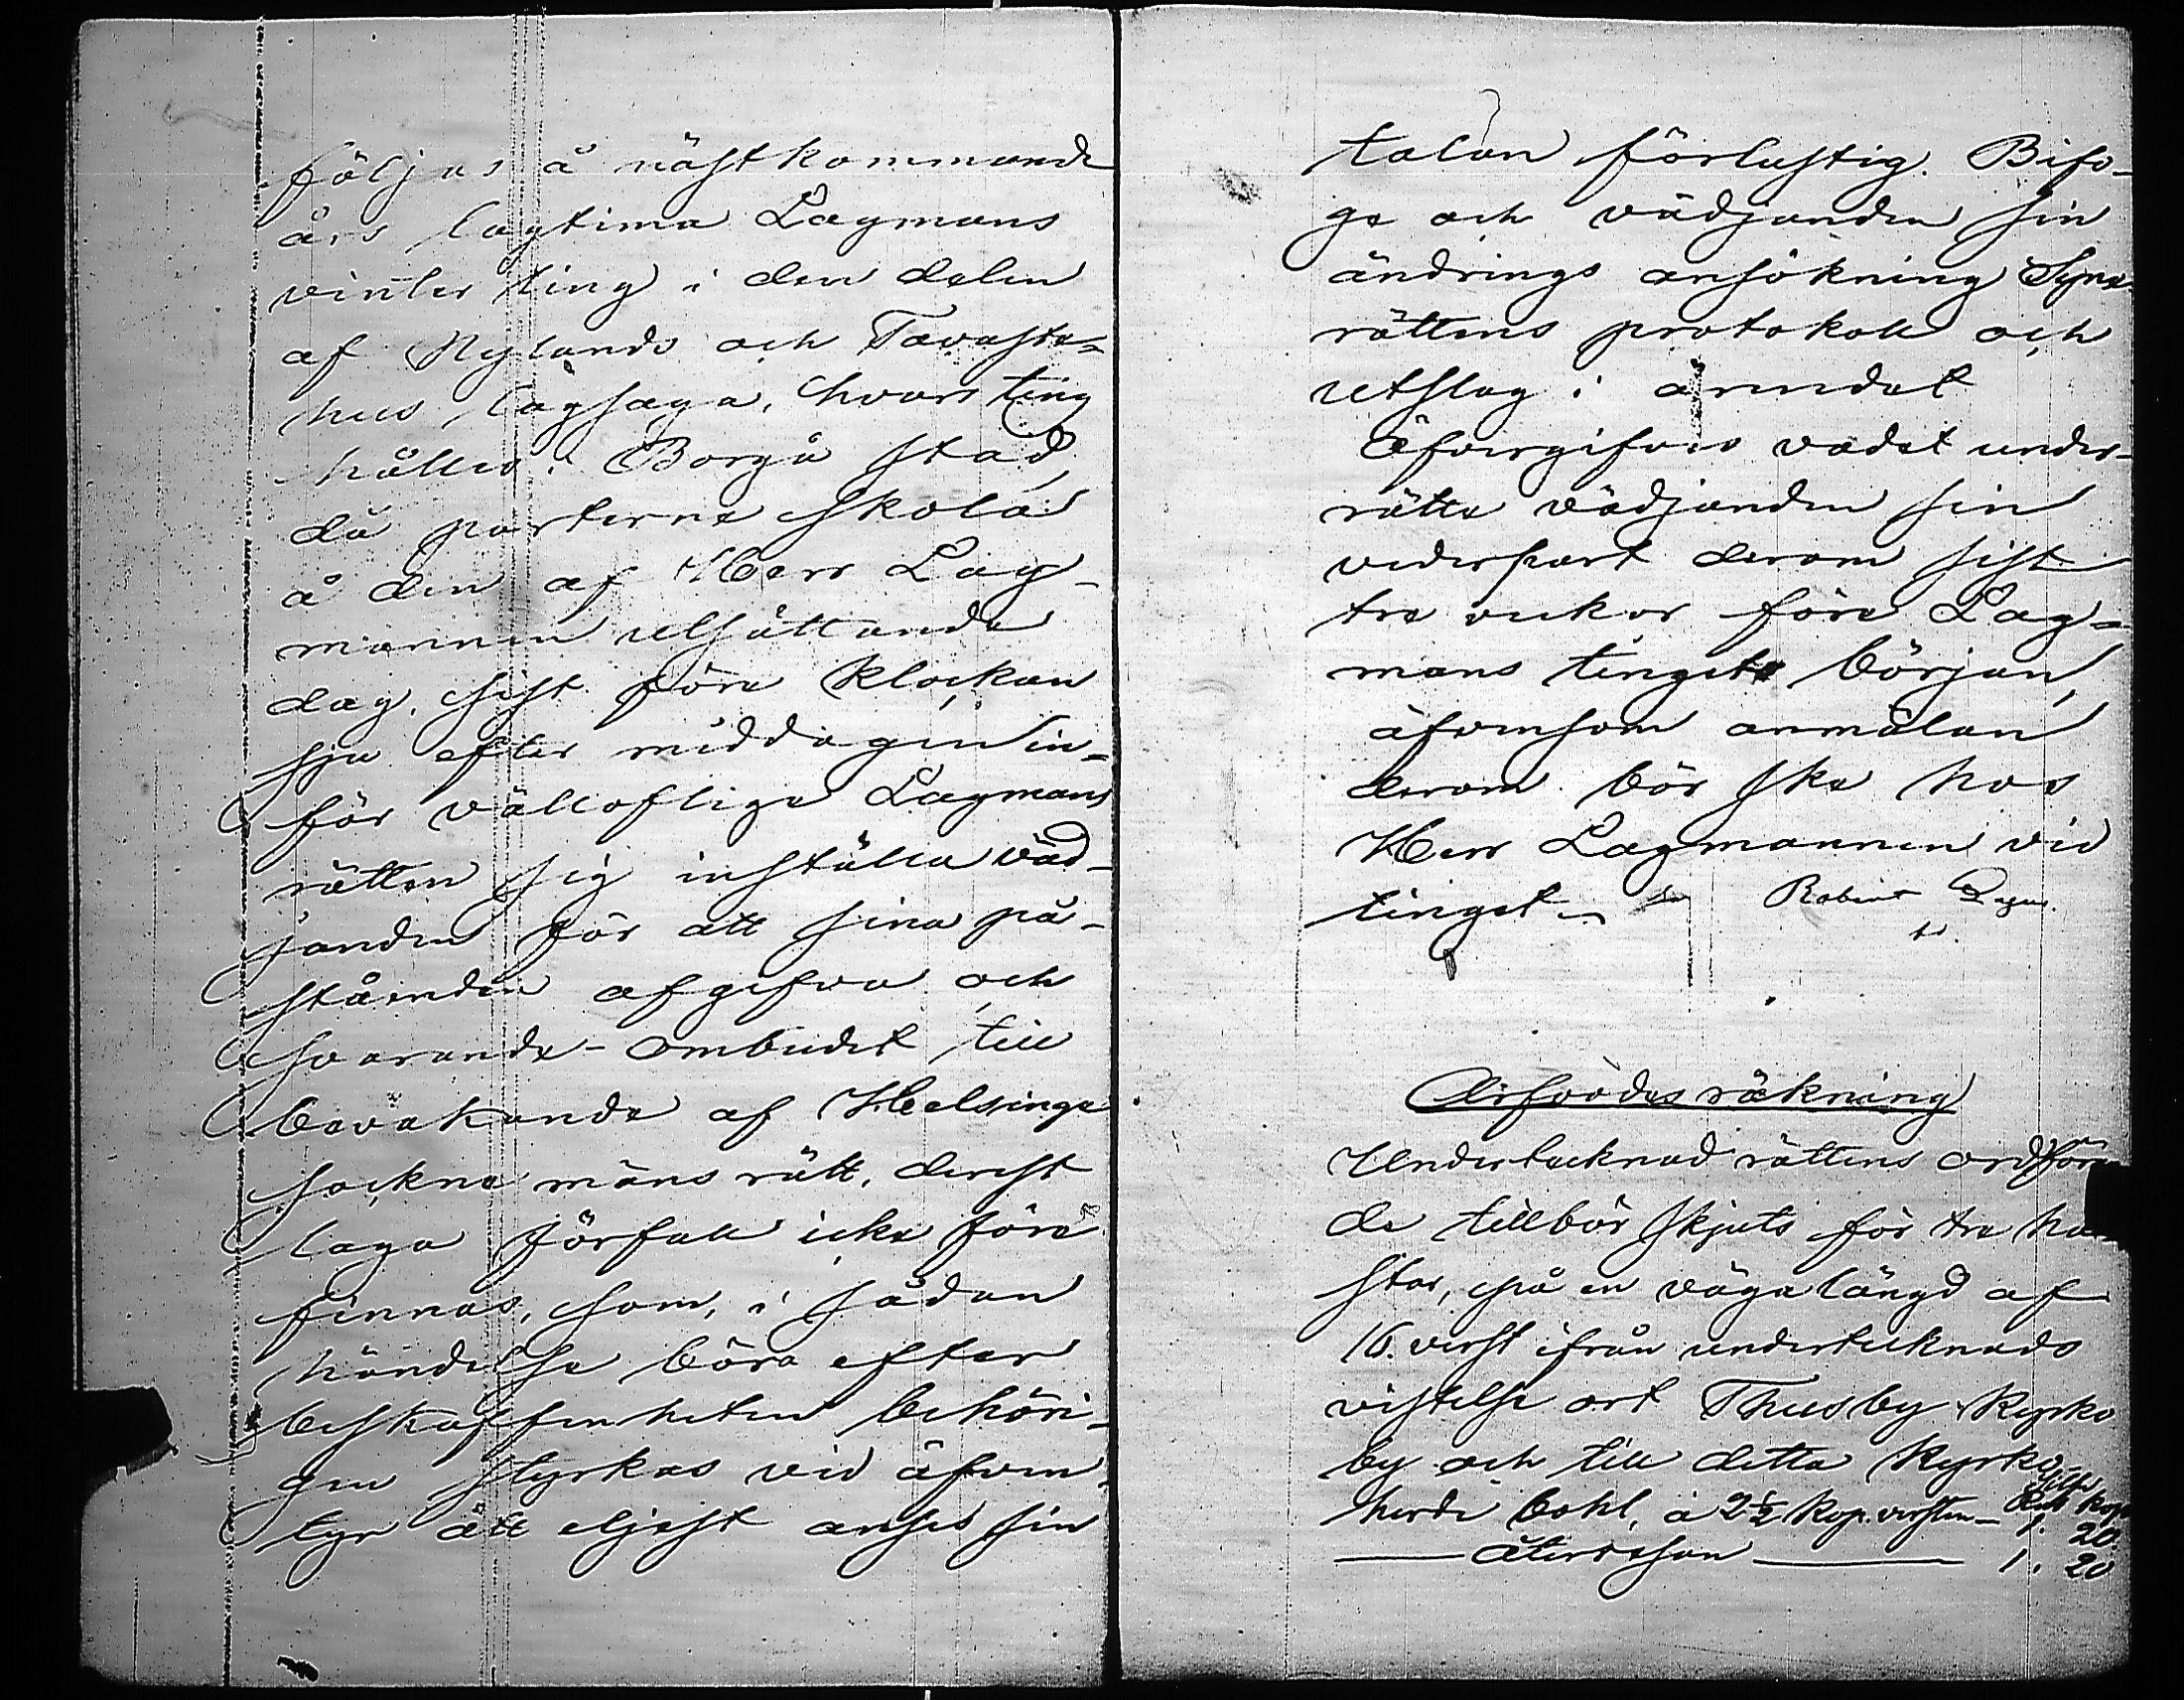 följas å nästkommande
års lagtima Lagmans
vinter ting i den delen
af Nylands och Tavaste-
hus, lagsaga, hvars ting
hålles i Borgå stad,
då parterne skola
å den af Herr Lag-
mannen utsättande
dag, sist före klockan
sju efter middagen in-
för vällofliga Lagmans
rätten sig inställa väd-
janden för att sina på-
ståenden afgifva och
svarande-ombudet till
bevakande af Helsinge
sockne mäns rätt, derest
laga förfall icke före
finnas, som, i sådan
händelse böra efter
beskaffenheten behöri-
gen styrkas vid äfven-
tyr att eljest anses sin
talan förlustig. Bifo-
ge och vädjanden sin
ändrings ansökning Syne
rättens protokoll och
utslag i ärendet
Öfvergifves vadet under-
rätte vädjanden sin
vederpart derom sist
tre veckor före Lag-
mans tingets början,
äfvensom anmälan
derom bör ske hos
Herr Lagmannen vid
tinget. Robert
Arfvodes räkning
Undertecknad rättens ordföran
de tillbör skjuts för tre hä-
star, på en väga längd af
16. verst ifrån undertecknads
vistelse ort Thusby Kyrko
by och till detta Kyrko-
herde bohl, à 2½ kop. versten – 1. 20.
Återresan 1. 20